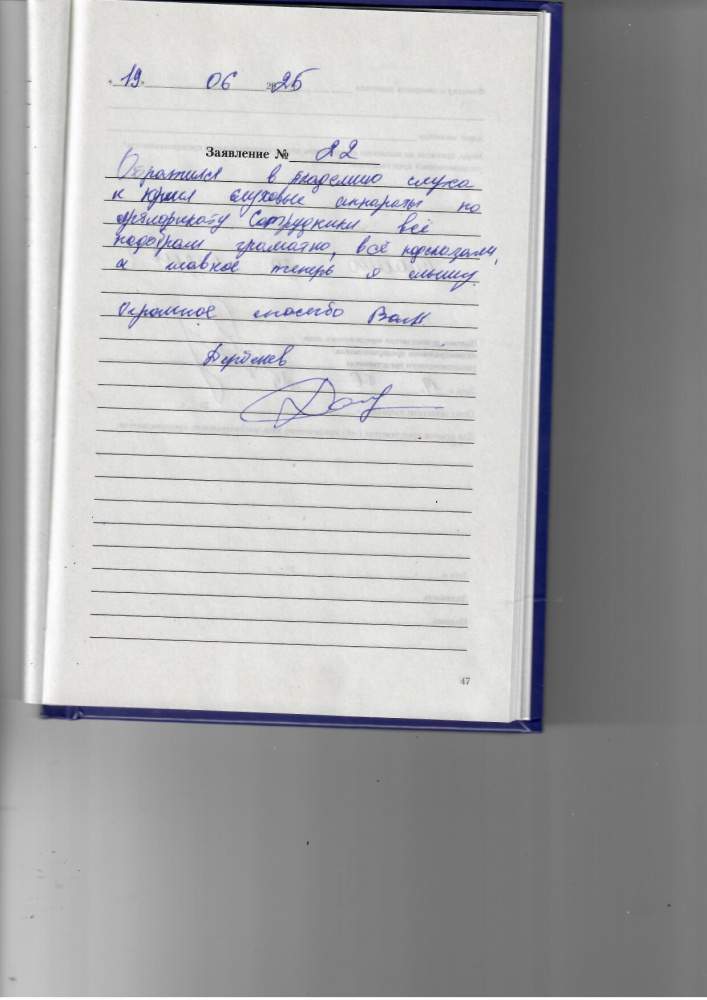 « 19 » 06 2025
Заявление № 22
Обратился в Академию слуха
и купил слуховые аппараты по
сертификату Сотрудники всё
подобрали граматно, всё подсказали,
а главное теперь я слышу.
Огромное спасибо Вам
47